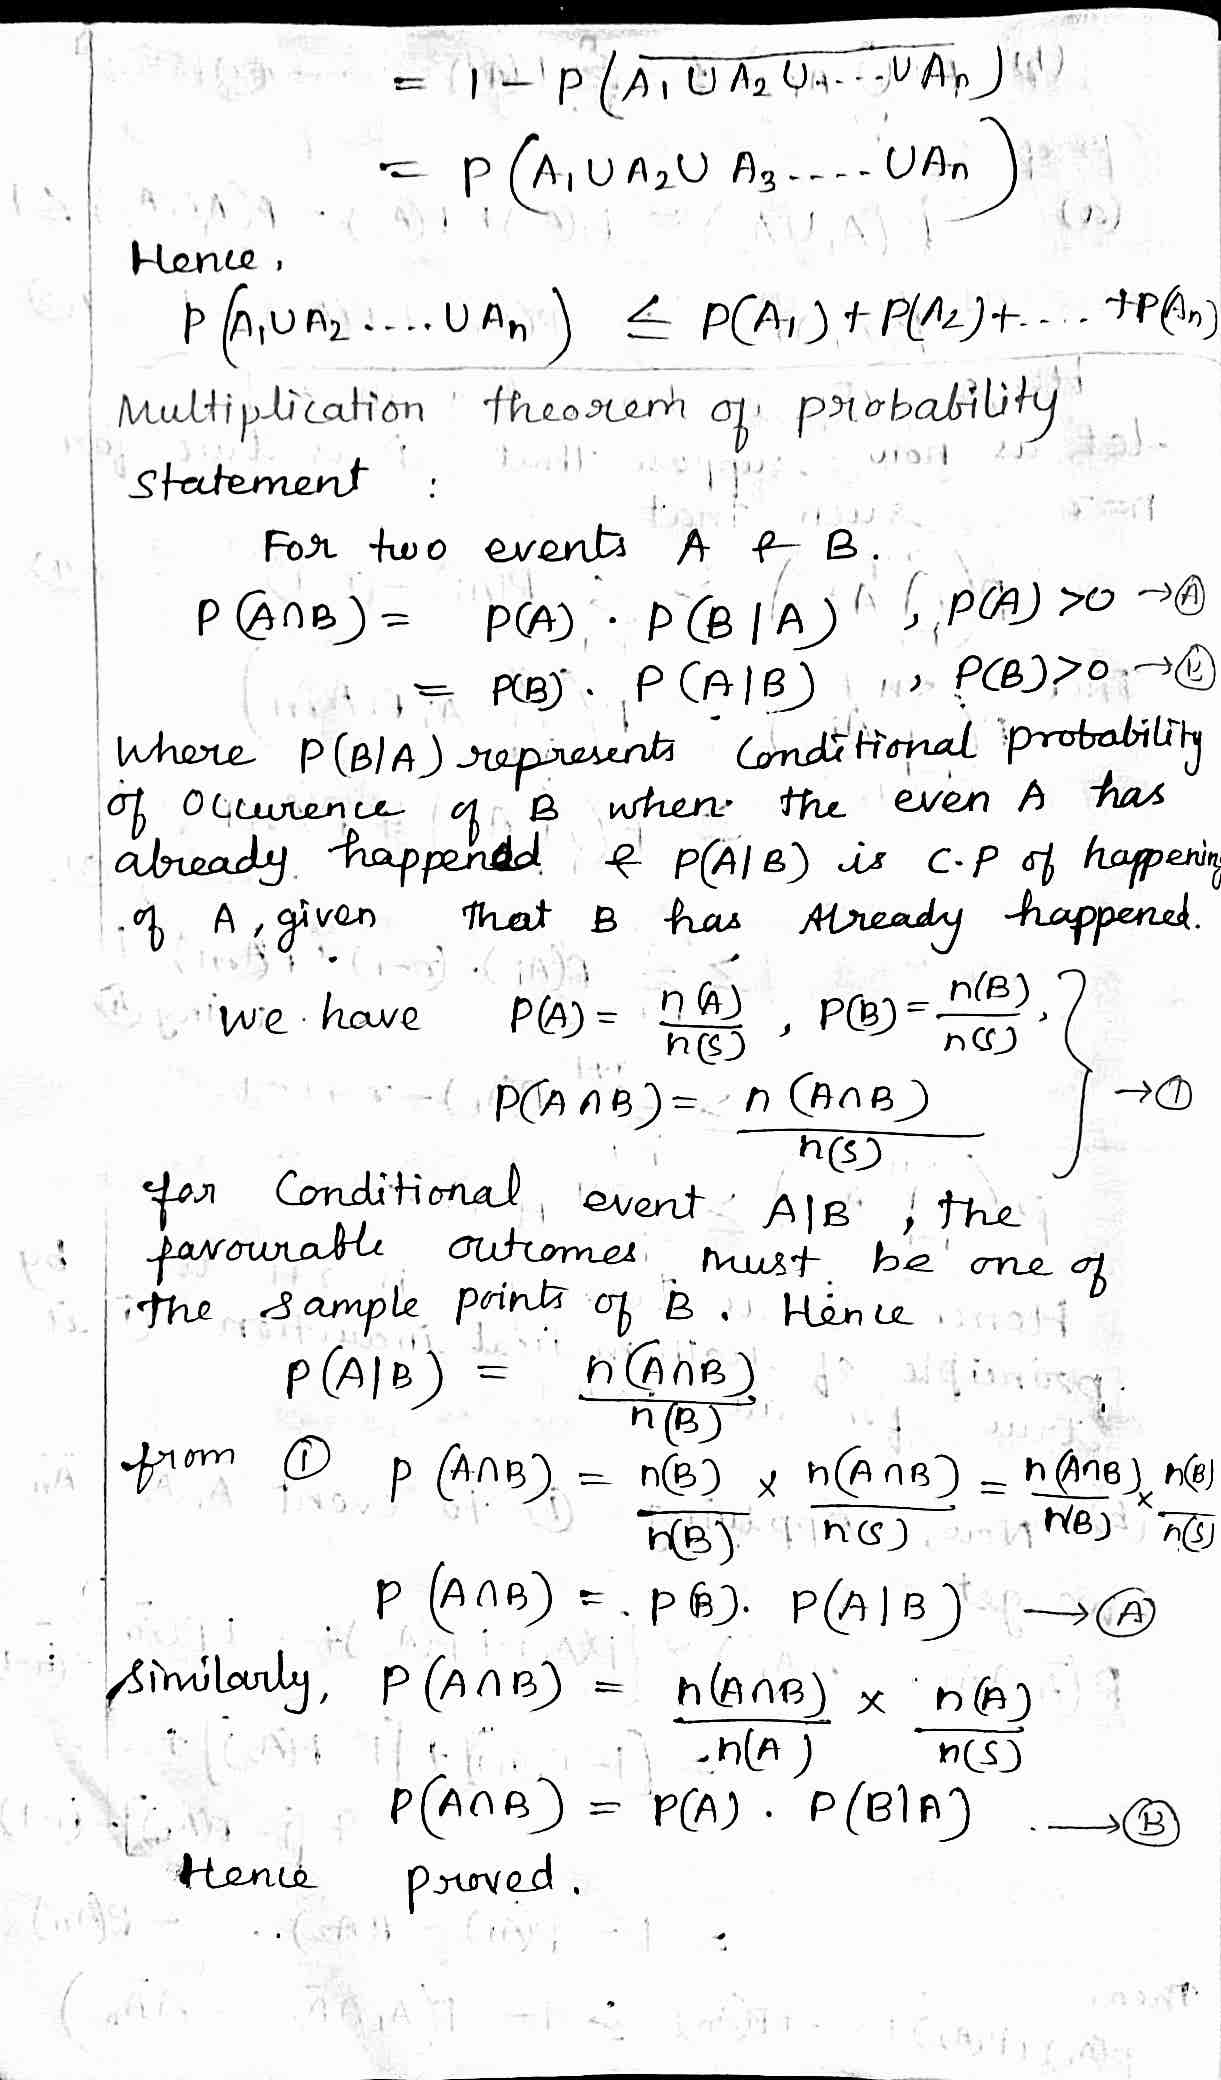 = 1 - P(\overline{A₁ ∪ A₂ ∪ .... ∪ Aₙ})
= P(A₁ ∪ A₂ ∪ A₃ ..... ∪ Aₙ)
Hence,
P(A₁ ∪ A₂ .... ∪ Aₙ) ≤ P(A₁) + P(A₂) + .... + P(Aₙ)
Multiplication theorem of probability
Statement :
For two events A & B.
P(A∩B) = P(A) · P(B|A) , P(A) >0 → Ⓐ
= P(B) · P(A|B) , P(B)>0 → Ⓑ
Where P(B|A) represents Conditional probability
of Occurence of B when the even A has
already happened & P(A|B) is C.P of happening
of A, given that B has Already happened.
We have P(A) = n(A)/n(S) , P(B) = n(B)/n(S) ,
P(A∩B) = n(A∩B)/n(S) } → ①
for Conditional event A|B , the
favourable outcomes must be one of
the sample points of B. Hence
P(A|B) = n(A∩B)/n(B)
from ① P(A∩B) = n(B)/n(B) × n(A∩B)/n(S) = n(A∩B)/n(B) × n(B)/n(S)
P(A∩B) = P(B). P(A|B) → Ⓐ
Similarly, P(A∩B) = n(A∩B)/n(A) × n(A)/n(S)
P(A∩B) = P(A) . P(B|A) → Ⓑ
Hence proved.